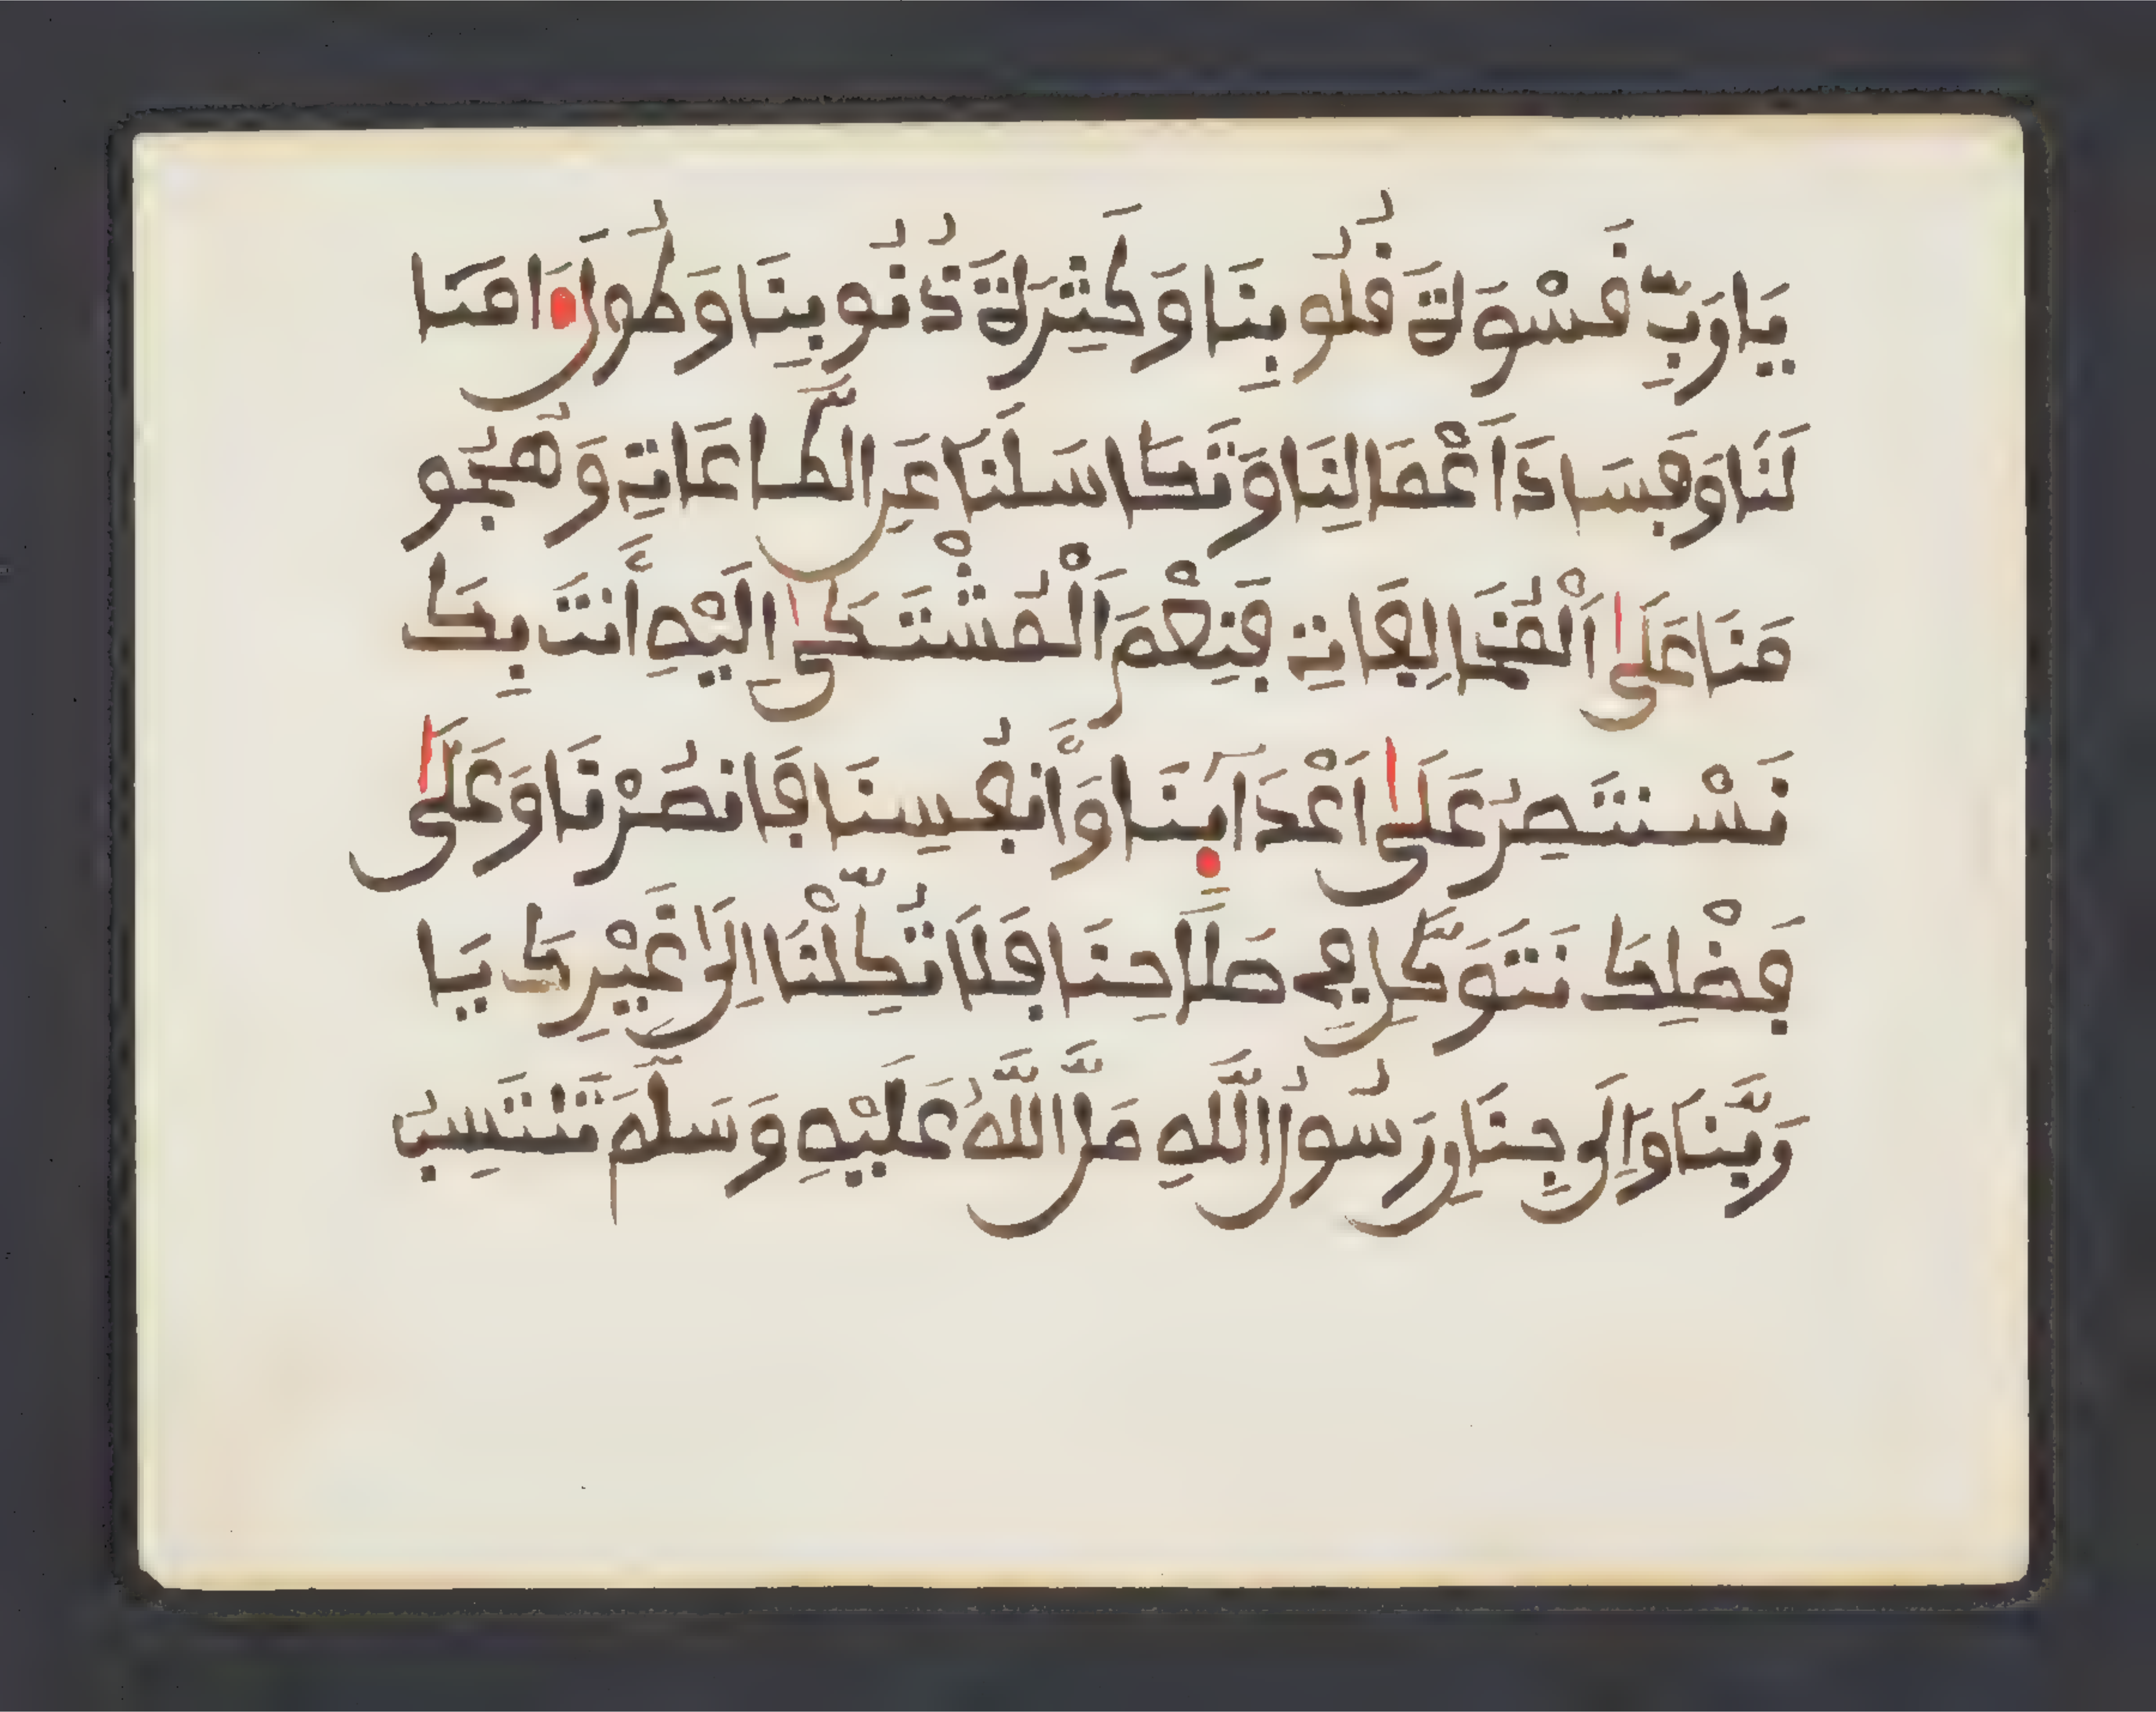 يَا رَبِّ قَسْوَةَ قُلُوبِنَا وَكَثِرَةَ ذُنُوبِنَا وَطُولَ ءَامَا
لَنَا وَفِسَادَ اَعْمَالِنَا وَتَكَاسَلْنَا عَنِ الطَّاعَاتِ وَهُجُو
مَنَا عَلَى اَلْمُخَالِفَاتِ فَنِعْمَ اَلْمُشْتَكَى اِلَيْهِ أَنتَ بِكَ
نَسْتَنْصِرُ عَلَى اَعْدَآئِنَا وَأَنفُسِنَا فَانصُرْنَا وَعَلَى
فَضْلِكَ نَتَوَكَّلِ فِي صَلَاحِنَا فَلَا تُكِلْنَا اِلَى غَيْرِكَ يَا
رَبَّنَا وَاِلَى رَسُولُ اللَّهِ صَلَّ اللَّهُ عَلَيْهِ وَسَلَّمَ نَنتَسِبُ